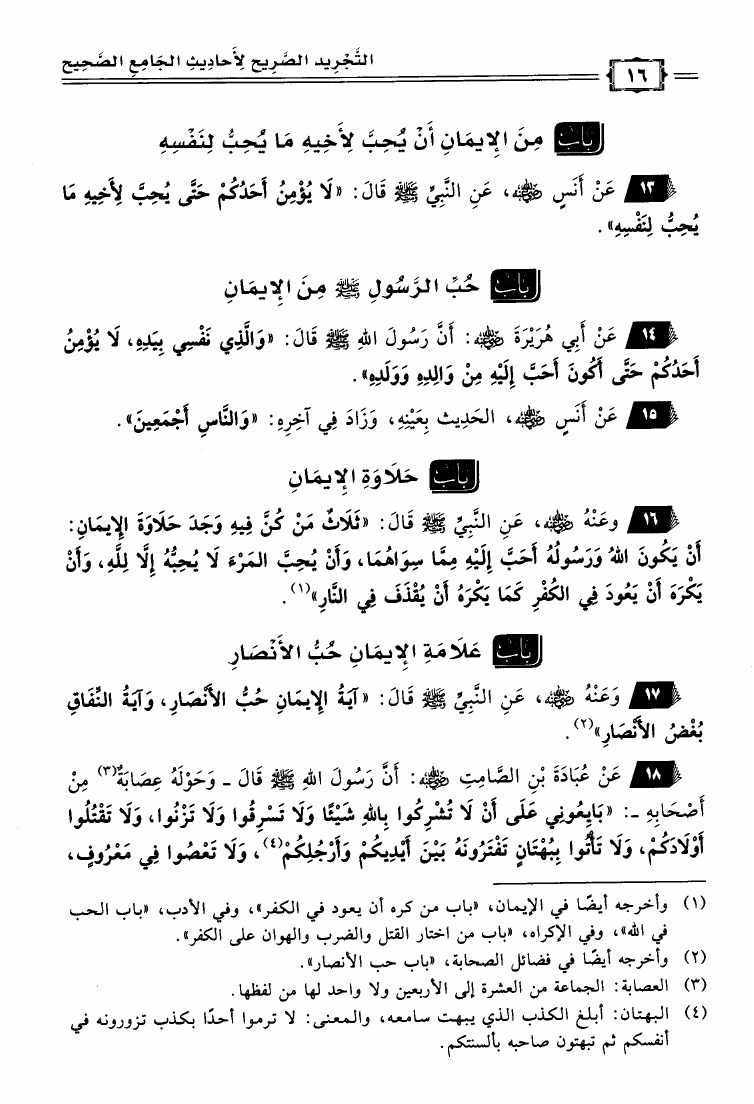 التَّجْرِيد الصَّرِيح لِأَحَادِيثِ الجَامِعِ الصَّحِيح
١٦
باب مِنَ الإِيمَانِ أَنْ يُحِبَّ لِأَخِيهِ مَا يُحِبُّ لِنَفْسِهِ
١٣ عَنْ أَنَسٍ رضي الله عنه، عَنِ النَّبِيِّ ﷺ قَالَ: «لَا يُؤْمِنُ أَحَدُكُمْ حَتَّى يُحِبَّ لِأَخِيهِ مَا
يُحِبُّ لِنَفْسِهِ».
باب حُبُّ الرَّسُولِ ﷺ مِنَ الإِيمَانِ
١٤ عَنْ أَبِي هُرَيْرَةَ رضي الله عنه: أَنَّ رَسُولَ اللهِ ﷺ قَالَ: «وَالَّذِي نَفْسِي بِيَدِهِ، لَا يُؤْمِنُ
أَحَدُكُمْ حَتَّى أَكُونَ أَحَبَّ إِلَيْهِ مِنْ وَالِدِهِ وَوَلَدِهِ».
١٥ عَنْ أَنَسٍ رضي الله عنه، الحَدِيث بِعَيْنِهِ، وَزَادَ فِي آخِرِهِ: «وَالنَّاسِ أَجْمَعِينَ».
باب حَلَاوَةِ الإِيمَانِ
١٦ وعَنْهُ رضي الله عنه، عَنِ النَّبِيِّ ﷺ قَالَ: «ثَلَاثٌ مَنْ كُنَّ فِيهِ وَجَدَ حَلَاوَةَ الإِيمَانِ:
أَنْ يَكُونَ اللهُ وَرَسُولُهُ أَحَبَّ إِلَيْهِ مِمَّا سِوَاهُمَا، وَأَنْ يُحِبَّ المَرْءَ لَا يُحِبُّهُ إِلَّا لِلَّهِ، وَأَنْ
يَكْرَهَ أَنْ يَعُودَ فِي الكُفْرِ كَمَا يَكْرَهُ أَنْ يُقْذَفَ فِي النَّارِ»(١).
باب عَلَامَةِ الإِيمَانِ حُبُّ الأَنْصَارِ
١٧ وَعَنْهُ رضي الله عنه، عَنِ النَّبِيِّ ﷺ قَالَ: «آيَةُ الإِيمَانِ حُبُّ الأَنْصَارِ، وَآيَةُ النِّفَاقِ
بُغْضُ الأَنْصَارِ»(٢).
١٨ عَنْ عُبَادَةَ بْنِ الصَّامِتِ رضي الله عنه: أَنَّ رَسُولَ اللهِ ﷺ قَالَ ـ وَحَوْلَهُ عِصَابَةٌ(٣) مِنْ
أَصْحَابِهِ ـ: «بَايِعُونِي عَلَى أَنْ لَا تُشْرِكُوا بِاللهِ شَيْئًا وَلَا تَسْرِقُوا وَلَا تَزْنُوا، وَلَا تَقْتُلُوا
أَوْلَادَكُمْ، وَلَا تَأْتُوا بِبُهْتَانٍ تَفْتَرُونَهُ بَيْنَ أَيْدِيكُمْ وَأَرْجُلِكُمْ(٤)، وَلَا تَعْصُوا فِي مَعْرُوفٍ،
(١) وأخرجه أيضًا في الإيمان، «باب من كره أن يعود في الكفر»، وفي الأدب، «باب الحب
في الله»، وفي الإكراه، «باب من اختار القتل والضرب والهوان على الكفر».
(٢) وأخرجه أيضًا في فضائل الصحابة، «باب حب الأنصار».
(٣) العصابة: الجماعة من العشرة إلى الأربعين ولا واحد لها من لفظها.
(٤) البهتان: أبلغ الكذب الذي يبهت سامعه، والمعنى: لا ترموا أحدًا بكذب تزورونه في
أنفسكم ثم تبهتون صاحبه بألسنتكم.